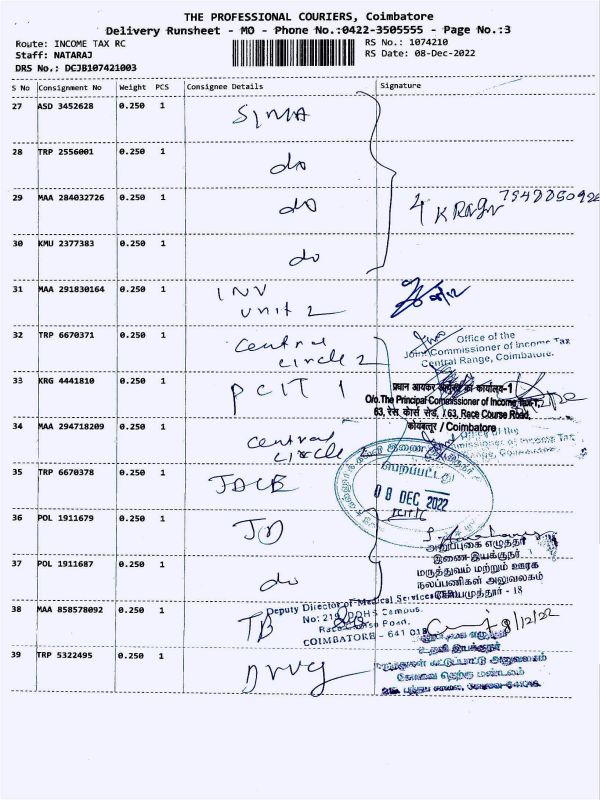 THE PROFESSIONAL COURIERS, Coimbatore
Delivery Runsheet - MO - Phone No.:0422-3505555 - Page No.:3
Route: INCOME TAX RC
RS No.: 1074210
Staff: NATARAJ
RS Date: 08-Dec-2022
DRS No.: DCJB107421003
S No Consignment No Weight PCS Consignee Details Signature
27 ASD 3452628 0.250 1
28 TRP 2556001 0.250 1 do
29 MAA 284032726 0.250 1 do
30 KMU 2377383 0.250 1 do
31 MAA 291830164 0.250 1 INV
unit 2
32 TRP 6670371 0.250 1 central
circle 2
Office of the
Joint Commissioner of Income Tax
Central Range, Coimbatore.
33 KRG 4441810 0.250 1 PCIT 1
प्रधान आयकर आयुक्त का कार्यालय-1
O/o. The Principal Commissioner of Income Tax-1,
63, रेस कोर्स रोड, / 63, Race Course Road,
कोयंबत्तूर / Coimbatore
34 MAA 294718209 0.250 1 central
circle
35 TRP 6670378 0.250 1
பெறப்பட்டது
08 DEC 2022
36 POL 1911679 0.250 1 JD
இணை இயக்குநர்
மருத்துவம் மற்றும் ஊரக
நலப்பணிகள் அலுவலகம்
37 POL 1911687 0.250 1 do
38 MAA 858578092 0.250 1 TB
Deputy Director of Medical Services
Race Course Road,
COIMBATORE - 641 018
8/12/22
39 TRP 5322495 0.250 1 Drug